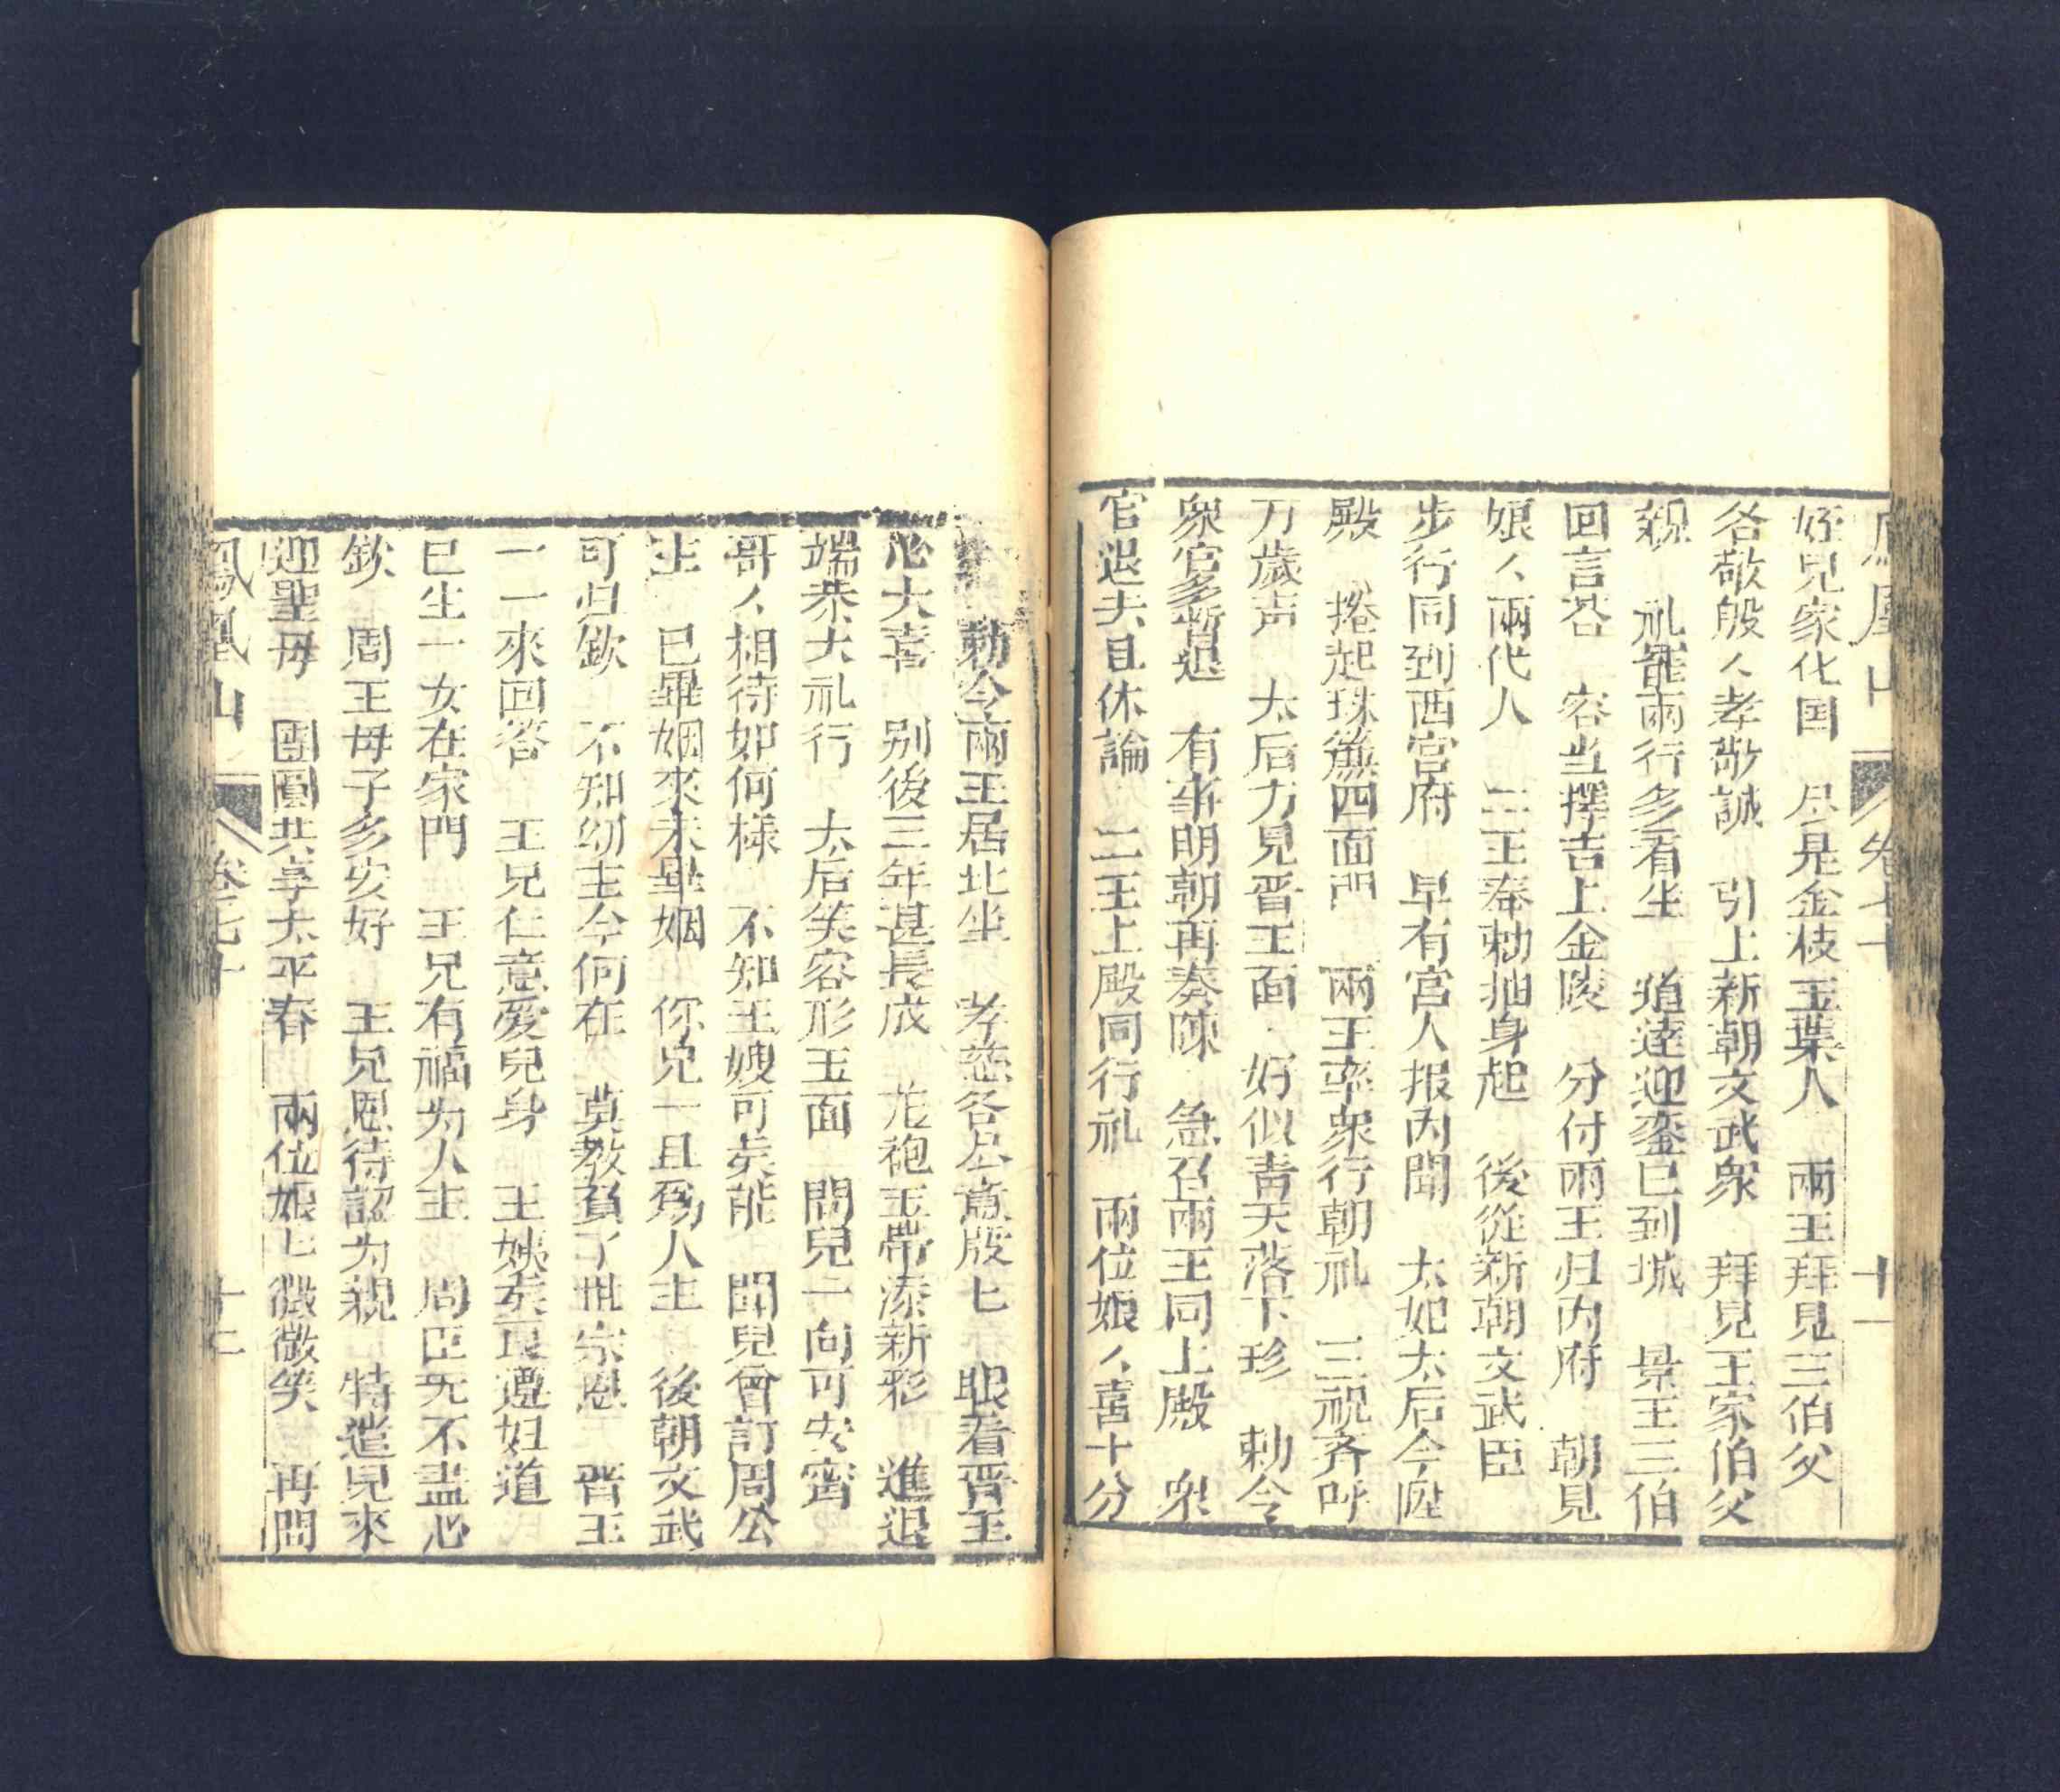 凰山 卷七十 十一
姪兒家化国 尽是金枝玉葉人 兩王拜見三伯父
各敬殷〻孝敬誠 引上新朝文武衆 拜見王家伯父
親 礼罷兩行多看坐 道達迎鑾已到城 景王三伯
回言答 容当擇吉上金陵 分付兩王归内府 朝見
娘〻兩代人 二王奉勅抽身起 後從新朝文武臣
步行同到西宮府 早有宮人报内聞 太妃太后今陞
殿 捲起珠簾四面門 兩王率衆行朝礼 三祝齐呼
万歲声 太后方見晋王面 好似青天落下珍 勅令
衆官多暫退 有事明朝再奏陳 急召兩王同上殿 衆
官退去且休論 二王上殿同行礼 兩位娘〻喜十分
勅令兩王居北坐 孝慈各尽意殷七 眼看晋王
心大喜 别後三年甚長成 龙袍玉帶添新彩 進退
端恭大礼行 太后笑容形玉面 問兒一向可安寗
哥〻相待如何樣 不知王嫂可美能 聞兒曾訂周公
生 已畢姻來未畢姻 你兄一旦爲人主 後朝文武
可归欽 不知幼主今何在 莫教負了世宗恩 晋王
一一來回答 王兄仁意愛兒身 王姊美良遵妇道
已生一女在家門 王兄有福为人主 周臣无不盡心
欽 周王母子多安好 王兄恩待認为親 特遣兒來
迎聖母 團圓共享太平春 兩位娘七微微笑 再問
鳳凰山 卷七十 十二